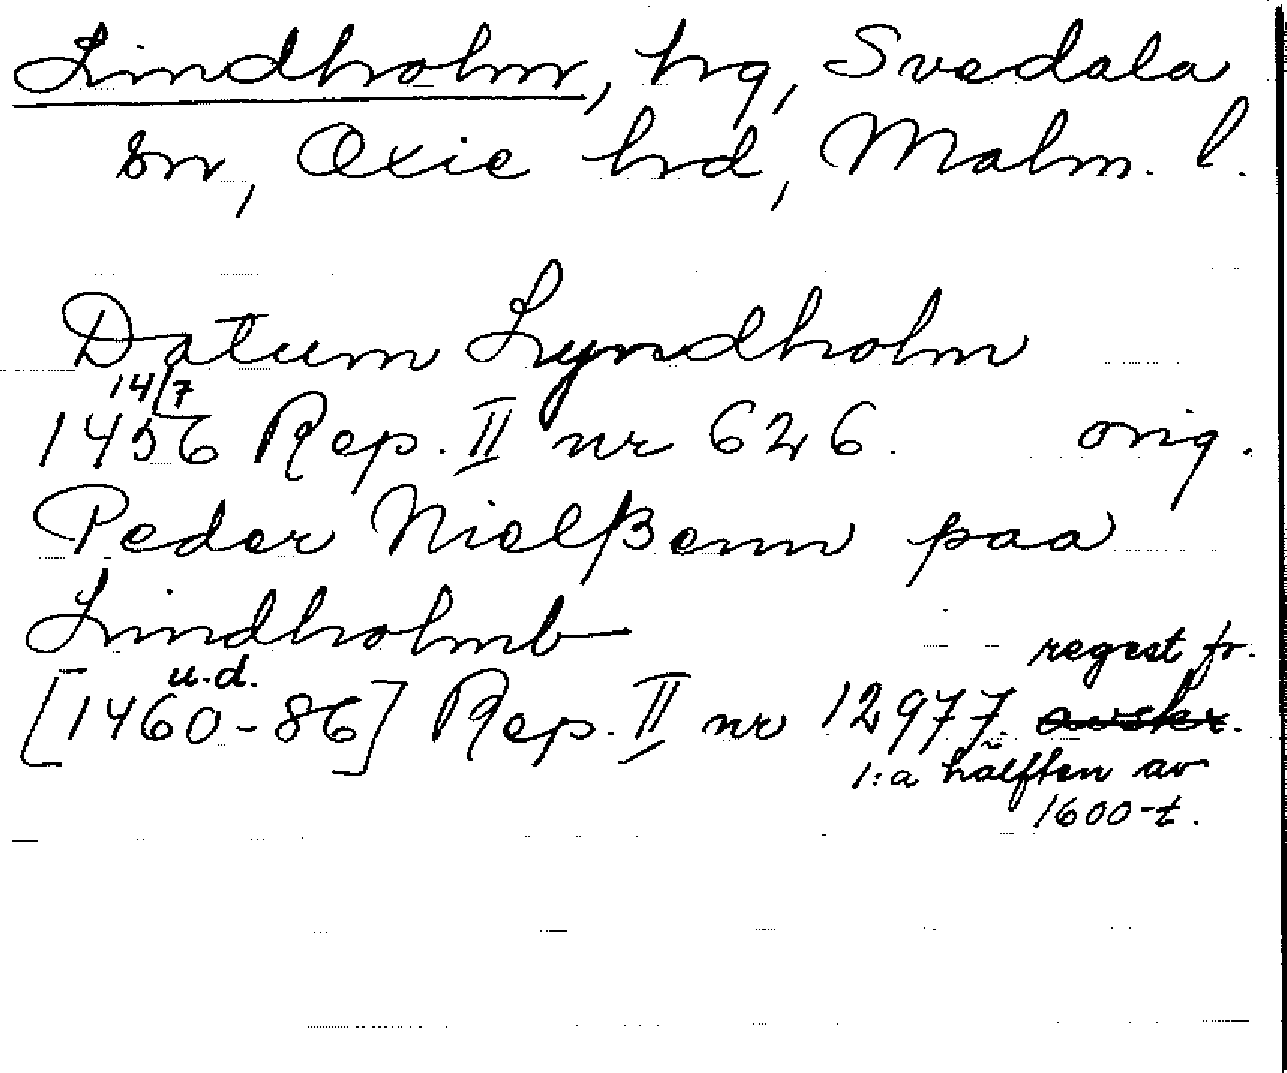 Lindholm, hg, Svedala
sn, Oxie hrd, Malm. l.
Datum Lyndholm
14/7
1456 Rep. II nr 626. orig.
Peder Nielßenn paa
Lindholmb
u.d. regest fr.
[1460-86] Rep. II nr 12977 avskr.
1:a hälften av
1600-t.